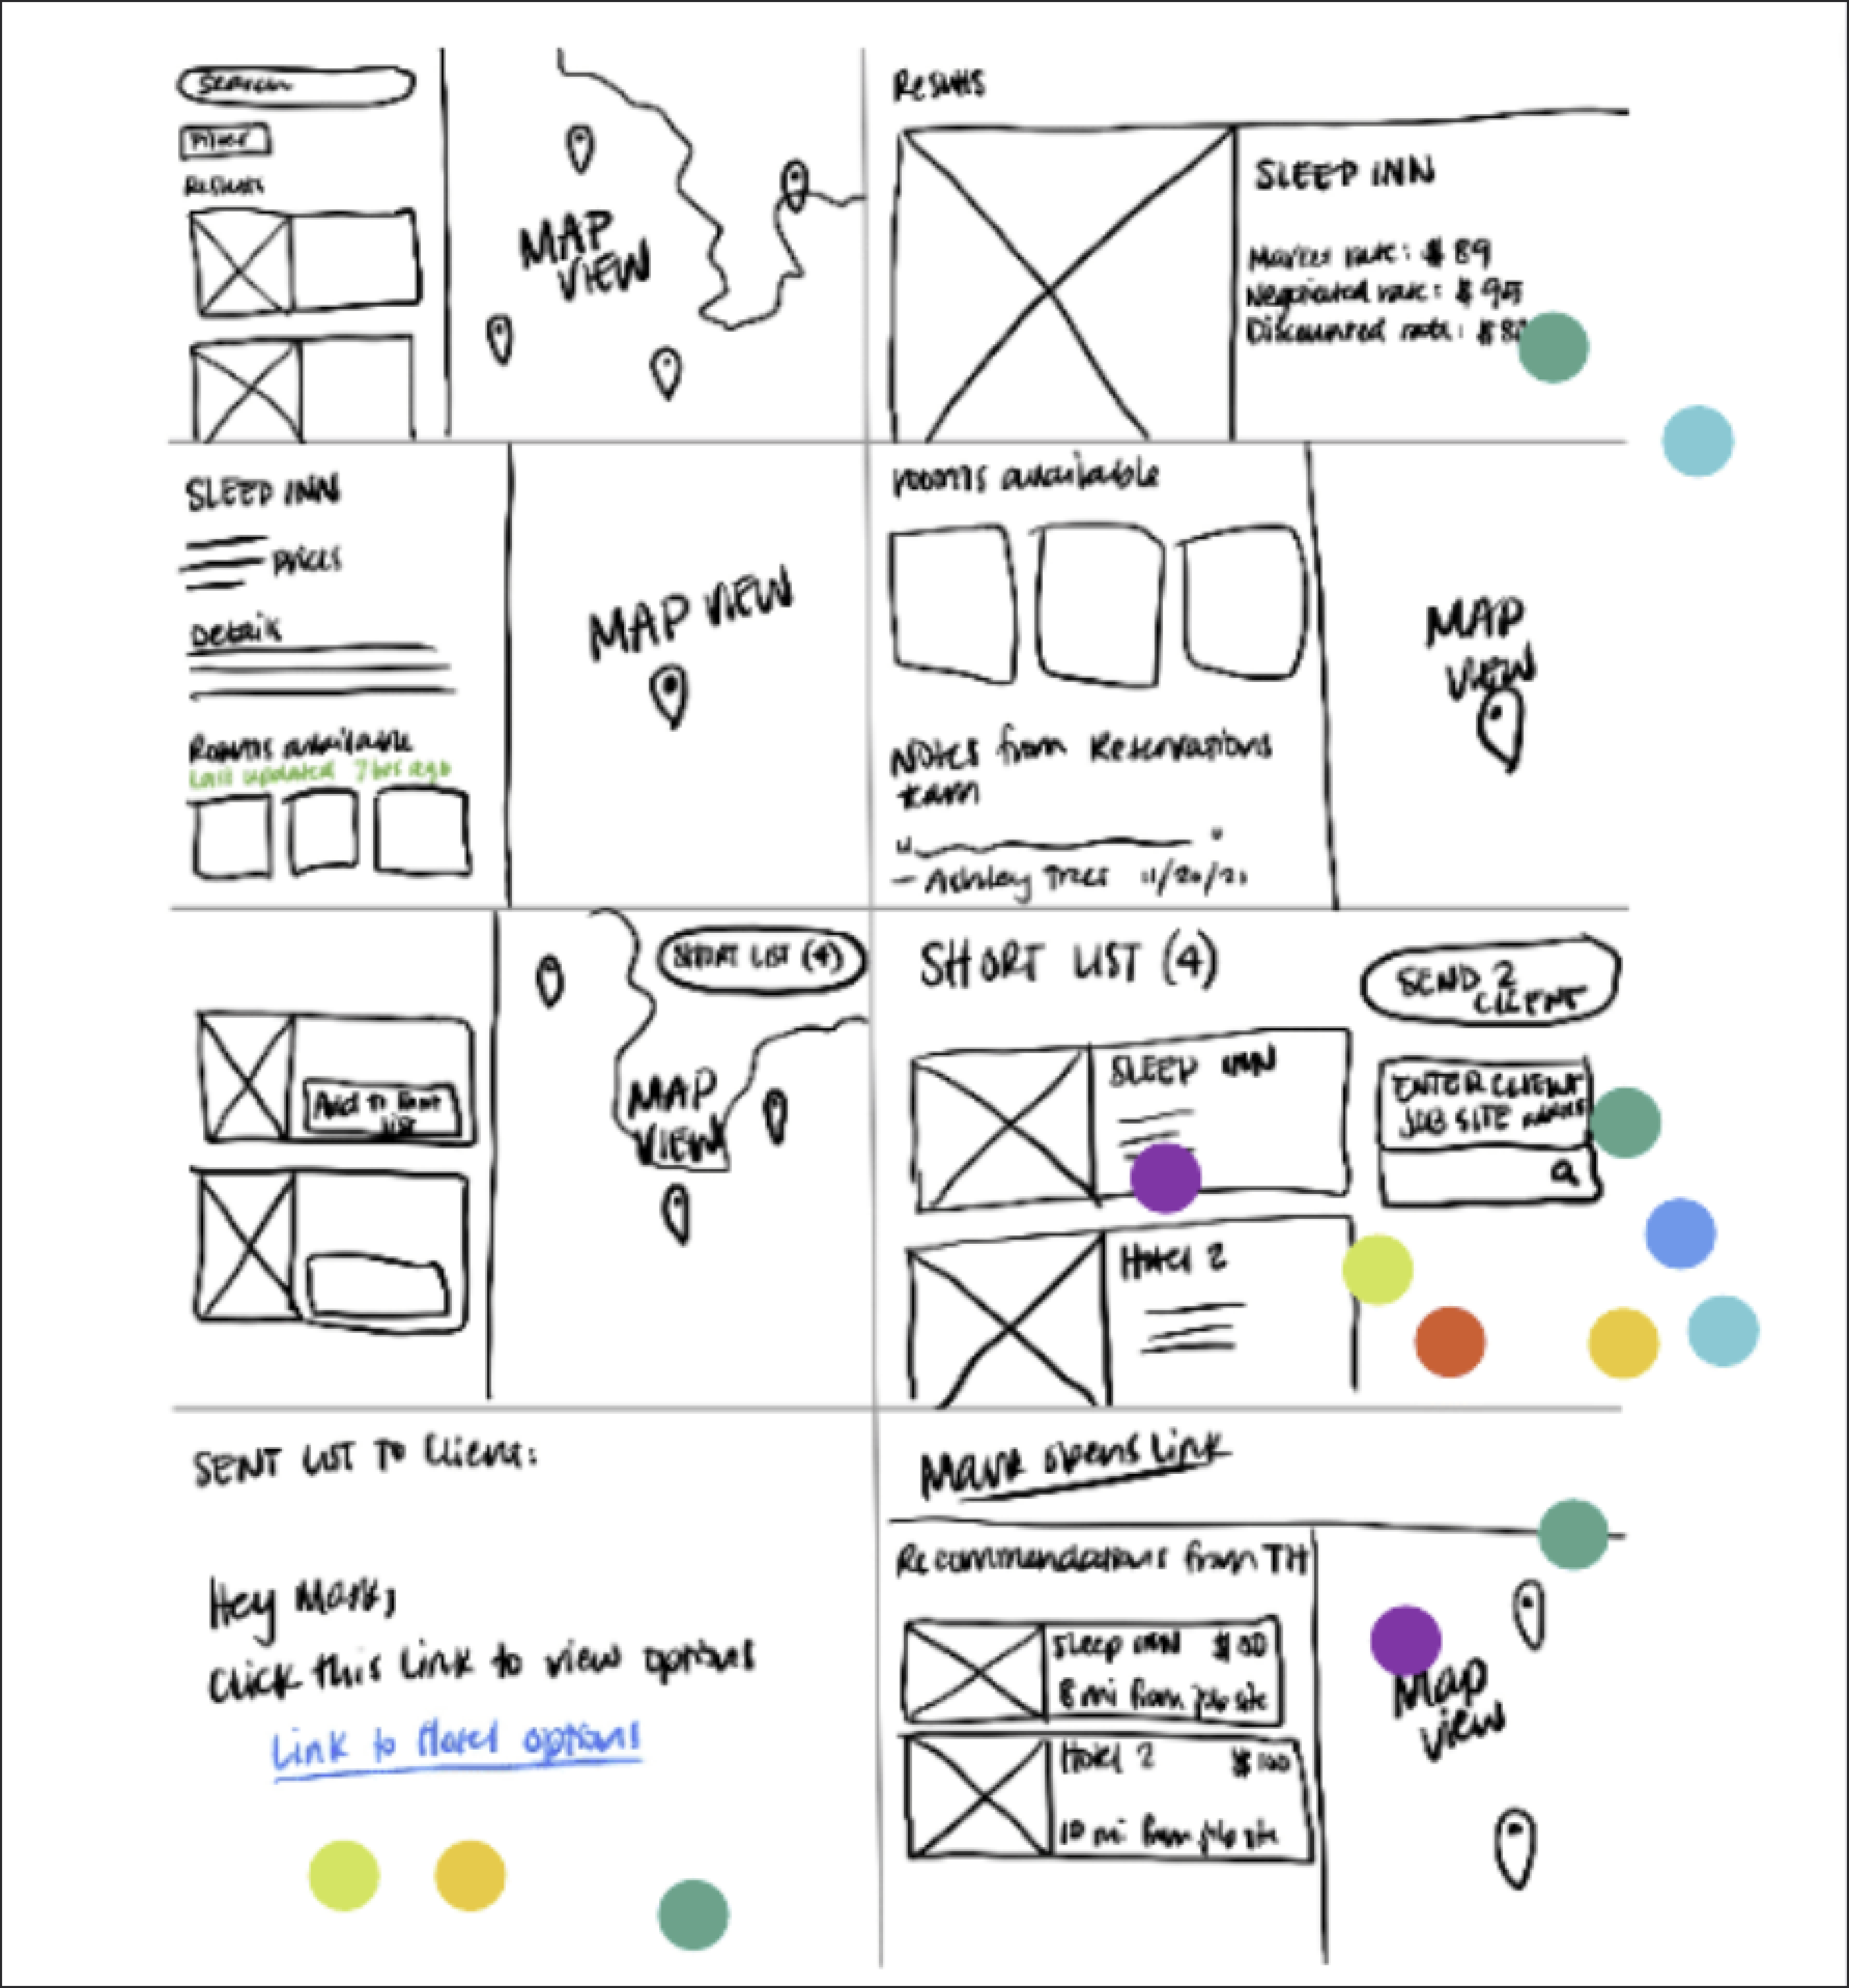 Search
Filter
Results
MAP
VIEW
Results
SLEEP INN
Market rate: $89
Negotiated rate: $95
Discounted rate: $8
SLEEP INN
prices
Details
Rooms available
Last updated 7 hrs ago
MAP VIEW
rooms available
Notes from Reservations
team
- Ashley 11/20/21
MAP
VIEW
Add to Short
list
SHORT LIST (4)
MAP
VIEW
SHORT LIST (4)
SLEEP INN
Hotel 2
SEND 2
CLIENT
ENTER CLIENT
JOB SITE
SENT LIST TO Client:
Hey Mark,
Click this link to view options
Link to Hotel options
Mark opens Link
Recommendations from TH
Sleep INN $100
8 mi from job site
Hotel 2 $100
10 mi from job site
Map
view